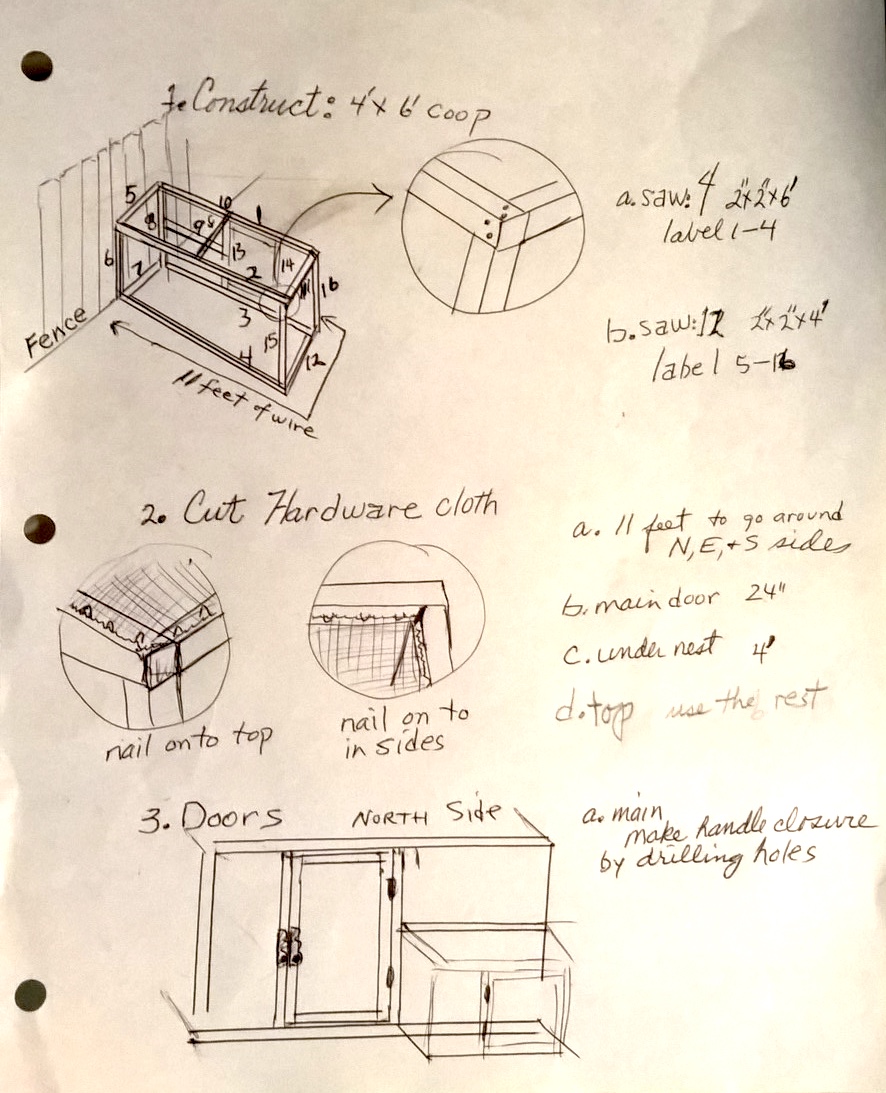 1. Construct: 4' x 6' coop
a. saw: 4 2"x2"x6'
label 1-4
5
10
1
8
9
8
6
13
2
14
7
16
11
3
15
4
12
Fence
11 feet of wire
b. saw: 12 2"x2"x4'
label 5-16
2. Cut Hardware cloth
a. 11 feet to go around
N, E, + S sides
b. main door 24"
c. under nest 4'
d. top use the rest
nail onto top
nail on to
in sides
3. Doors NORTH Side
a. main
make handle closure
by drilling holes